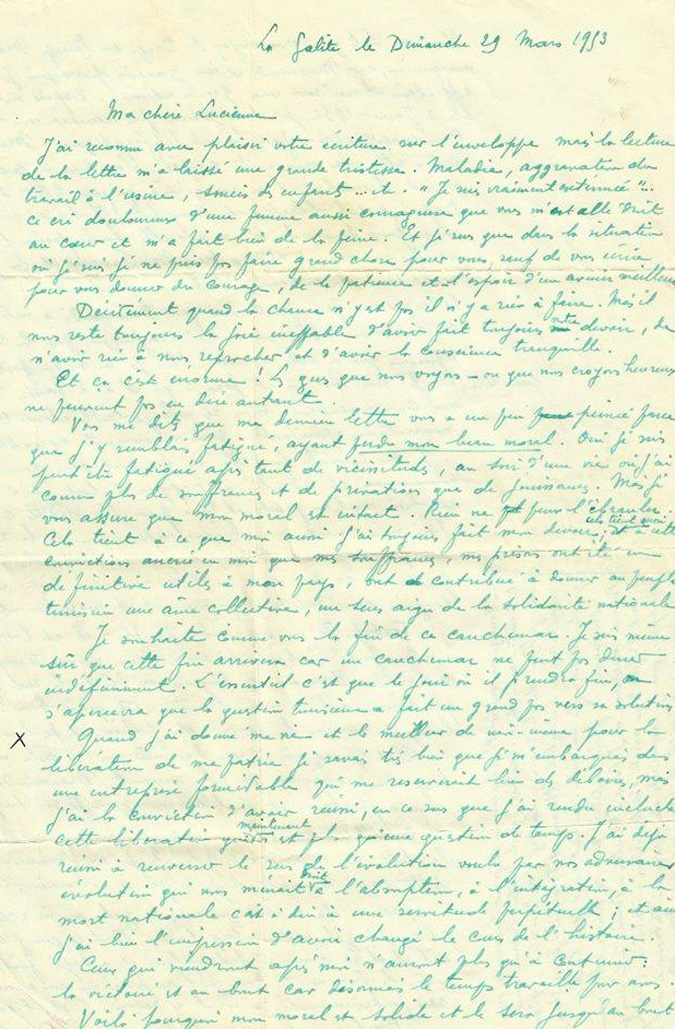 La Galite le Dimanche 29 Mars 1953
Ma chère Lucienne
J'ai reconnu avec plaisir votre écriture sur l'enveloppe mais la lecture
de la lettre m'a laissé une grande tristesse. Maladie, aggravation du
travail à l'usine, soucis des enfants...etc. "Je suis vraiment exténuée"..
ce cri douloureux d'une femme aussi courageuse que vous m'est allé droit
au cœur et m'a fait bien de la peine. Et je sens que dans la situation
où je suis je ne puis pas faire grand chose pour vous, sauf de vous écrire
pour vous donner du courage, de la patience et l'espoir d'un avenir meilleur
Décidément quand la chance n'y est pas il n'y a rien à faire. Mais il
nous reste toujours la joie ineffable d'avoir fait toujours notre devoir, de
n'avoir rien à nous reprocher et d'avoir la conscience tranquille.
Et ça c'est énorme ! Les gens que nous voyons - ou que nous croyons heureux
ne peuvent pas en dire autant.
Vous me dites que ma dernière lettre vous a un peu peinée parce
que j'y semblais fatigué, ayant perdu mon beau moral. Oui je suis
peut-être fatigué après tant de vicissitudes, au soir d'une vie où j'ai
connu plus de souffrances et de privations que de jouissances. Mais je
vous assure que mon moral est intact. Rien ne peut l'ébranler.
Cela tient à ce que moi aussi j'ai toujours fait mon devoir, cela tient aussi à cette
conviction ancrée en moi que mes souffrances, mes prisons ont été en
définitive utiles à mon pays, ont contribué à donner au peuple
tunisien une âme collective, un sens aigu de la solidarité nationale
Je souhaite comme vous la fin de ce cauchemar. Je suis même
sûr que cette fin arrivera car un cauchemar ne peut pas durer
indéfiniment. L'essentiel c'est que le jour où il prendra fin, on
s'apercevra que la question tunisienne a fait un grand pas vers sa solution
X Quand j'ai donné ma vie et le meilleur de moi-même pour la
libération de ma patrie je savais très bien que je m'embarquais dans
une entreprise formidable qui me réserverait bien des déboires, mais
j'ai la conviction d'avoir réussi, en ce sens que j'ai rendu inéluctable
cette libération qui maintenant n'est plus qu'une question de temps. J'ai déjà
réussi à renverser le sens de l'évolution voulu par nos adversaires
évolution qui nous menait droit à l'absorption, à l'intégration, à la
mort nationale c'est à dire à une servitude perpétuelle ; et ainsi
j'ai bien l'impression d'avoir changé le cours de l'histoire.
Ceux qui viendront après moi n'auront plus qu'à continuer :
la victoire est au bout car désormais le temps travaille pour nous.
Voilà pourquoi mon moral est solide et le sera jusqu'au bout